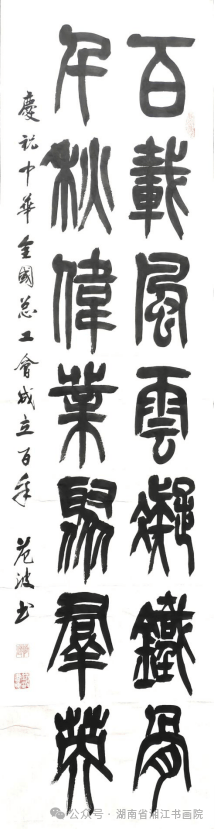 百載風雲凝鐵骨
千秋偉業聚群英
慶祝中華全國总工會成立百年 范波書
公众号·湖南省湘江书画院